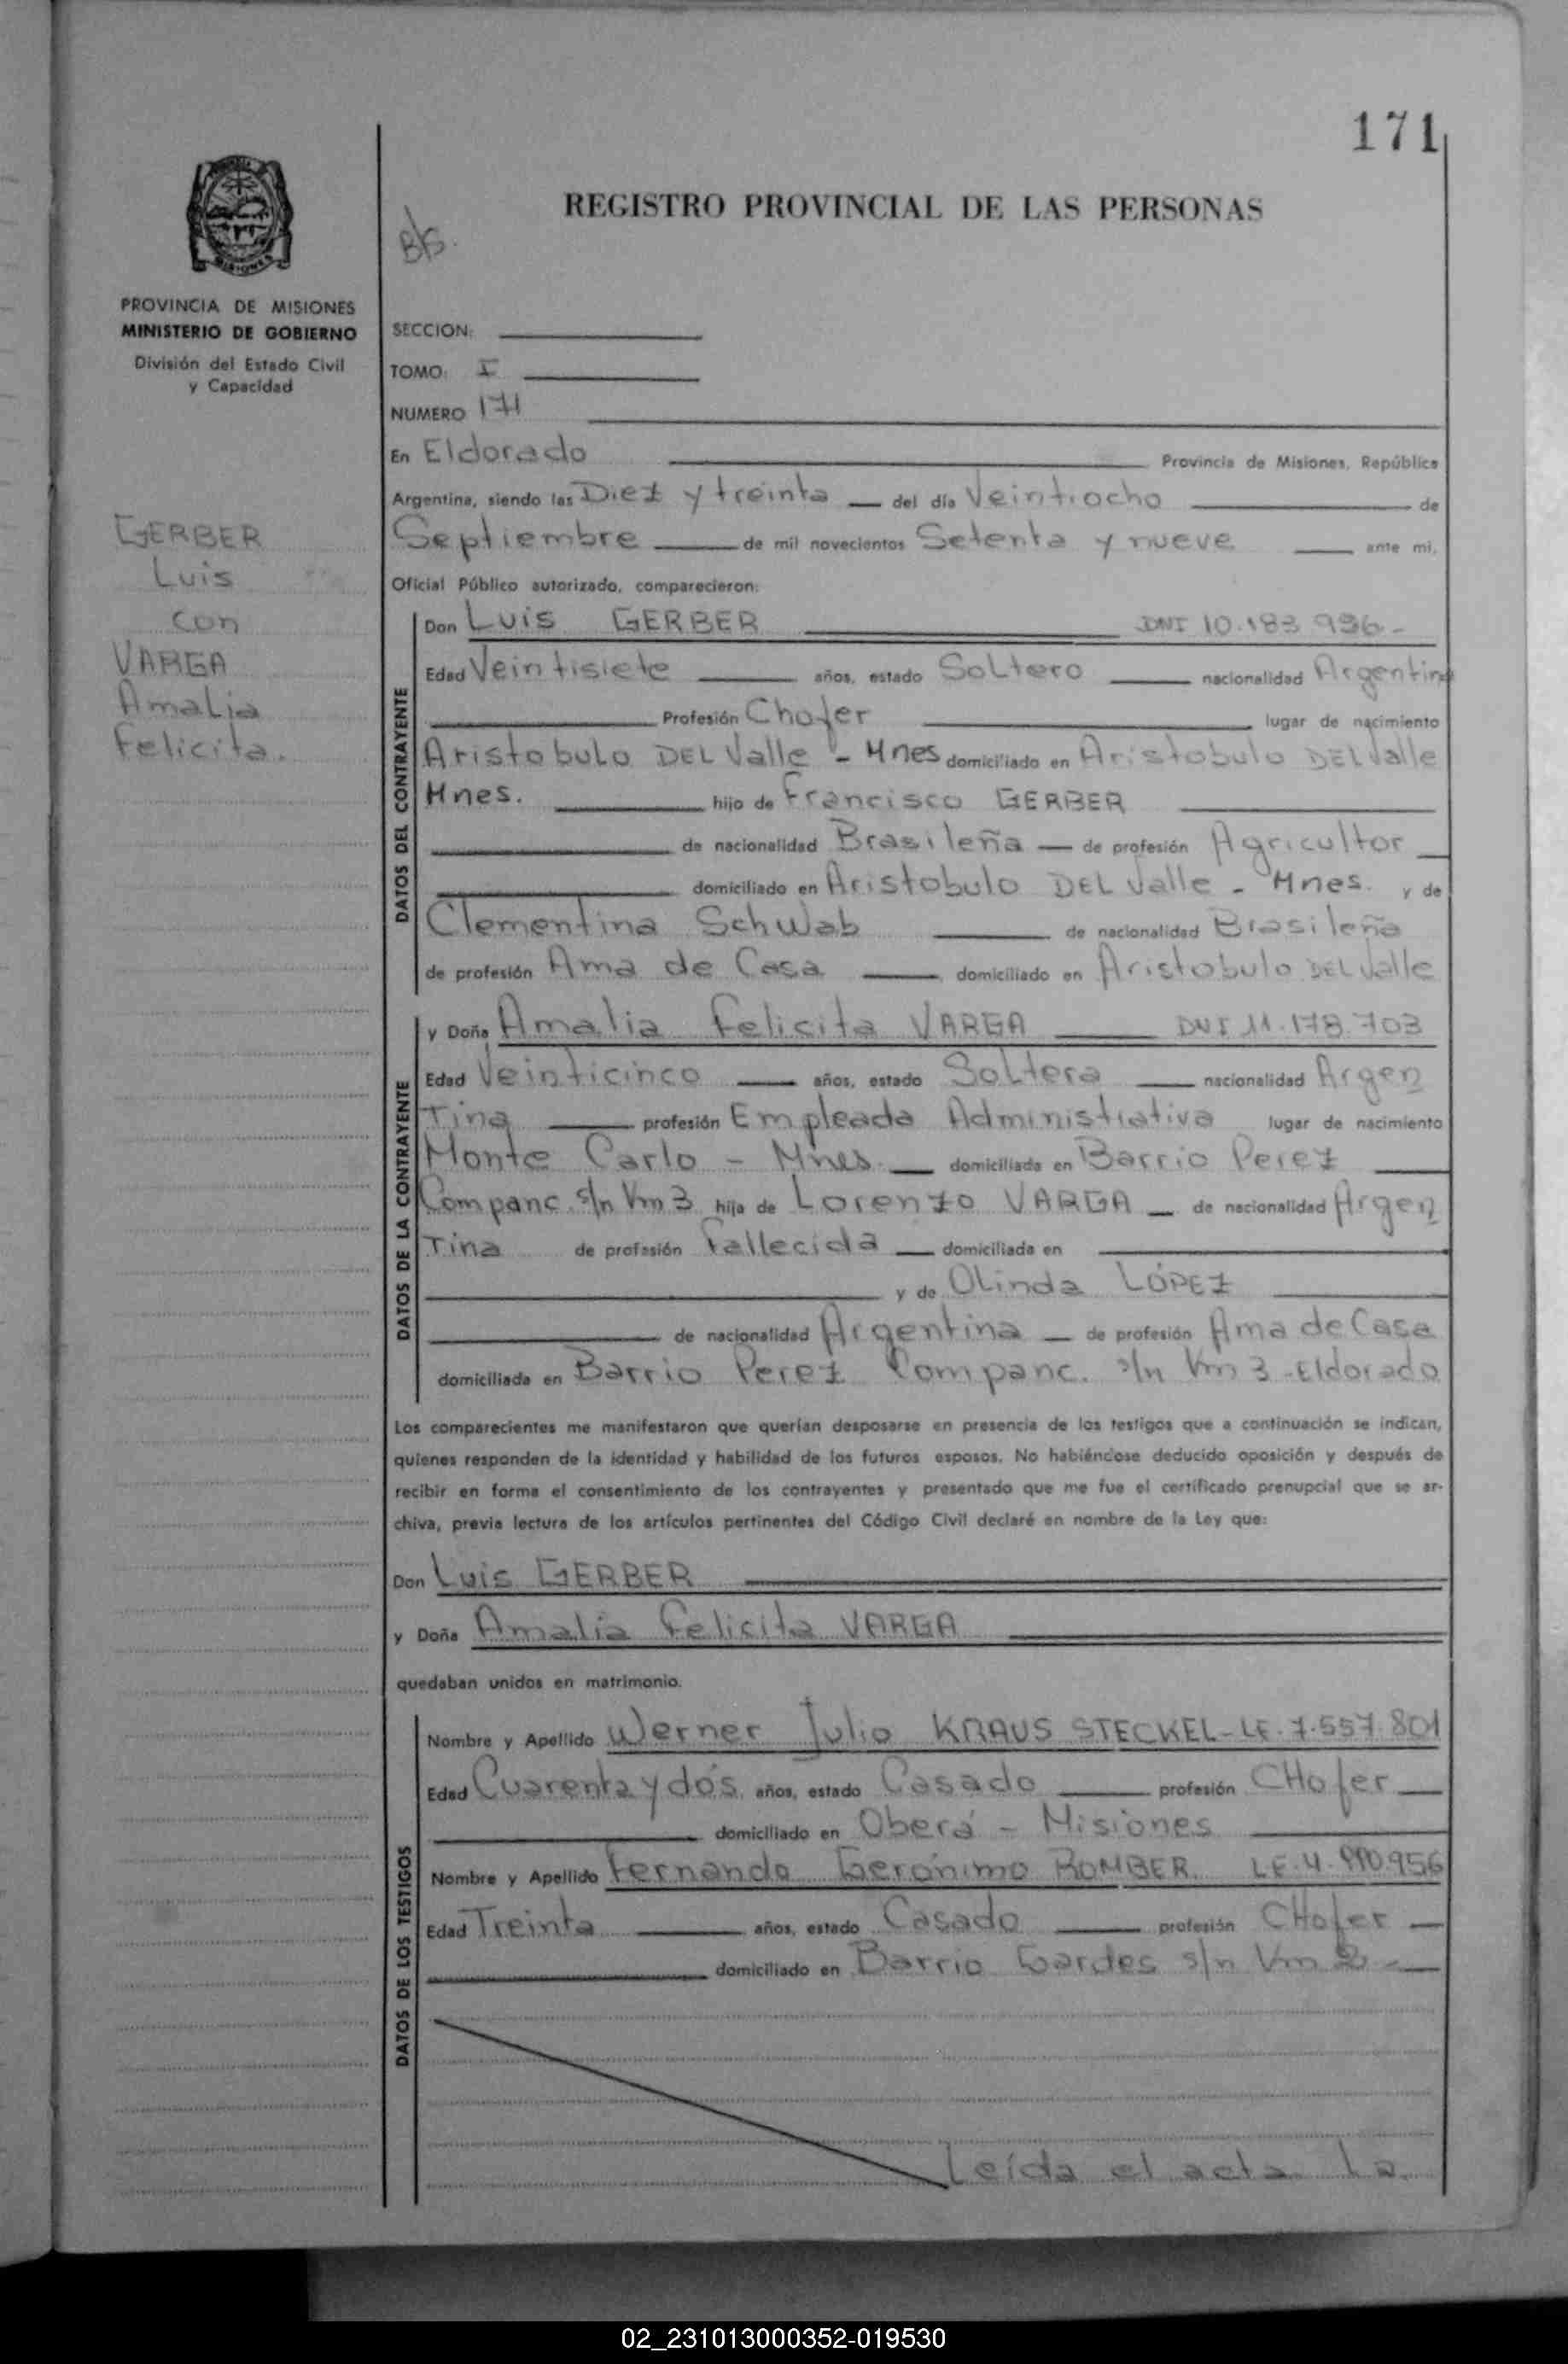 171
REGISTRO PROVINCIAL DE LAS PERSONAS
PROVINCIA DE MISIONES
MINISTERIO DE GOBIERNO
División del Estado Civil
y Capacidad
SECCION:
TOMO: I
NUMERO 171
En Eldorado Provincia de Misiones, República
Argentina, siendo las Diez y treinta del día Veintiocho de
Septiembre de mil novecientos Setenta y nueve ante mi,
Oficial Público autorizado, comparecieron:
GERBER
Luis
con
VARGA
Amalia
Felicita.
DATOS DEL CONTRAYENTE
Don Luis GERBER DNI 10.183.936-
Edad Veintisiete años, estado Soltero nacionalidad Argentina
Profesión Chofer lugar de nacimiento
Aristobulo DEL Valle - Mnes domiciliado en Aristobulo DEL Valle
Mnes. hijo de Francisco GERBER
de nacionalidad Brasileña de profesión Agricultor
domiciliado en Aristobulo DEL Valle - Mnes. y de
Clementina Schwab de nacionalidad Brasileña
de profesión Ama de Casa domiciliado en Aristobulo DEL Valle
DATOS DE LA CONTRAYENTE
y Doña Amalia Felicita VARGA DNI 11.178.703
Edad Veinticinco años, estado Soltera nacionalidad Argen
Tina profesión Empleada Administrativa lugar de nacimiento
Monte Carlo - Mnes. domiciliada en Barrio Perez
Companc. s/n Km 3 hija de Lorenzo VARGA de nacionalidad Argen
Tina de profesión Fallecida domiciliada en
y de Olinda LÓPEZ
de nacionalidad Argentina de profesión Ama de Casa
domiciliada en Barrio Perez Companc. s/n Km 3 - Eldorado
Los comparecientes me manifestaron que querían desposarse en presencia de los testigos que a continuación se indican,
quienes responden de la identidad y habilidad de los futuros esposos. No habiéndose deducido oposición y después de
recibir en forma el consentimiento de los contrayentes y presentado que me fue el certificado prenupcial que se ar-
chiva, previa lectura de los artículos pertinentes del Código Civil declaré en nombre de la Ley que:
Don Luis GERBER
y Doña Amalia Felicita VARGA
quedaban unidos en matrimonio.
DATOS DE LOS TESTIGOS
Nombre y Apellido Werner Julio KRAUS STECKEL - LE. 7.557.801
Edad Cuarenta y dós años, estado Casado profesión CHofer
domiciliado en Oberá - Misiones
Nombre y Apellido Fernando Gerónimo ROMBER. LE.
Edad Treinta años, estado Casado profesión CHofer
domiciliado en Barrio s/n Km
Leída el acta La
02_231013000352-019530